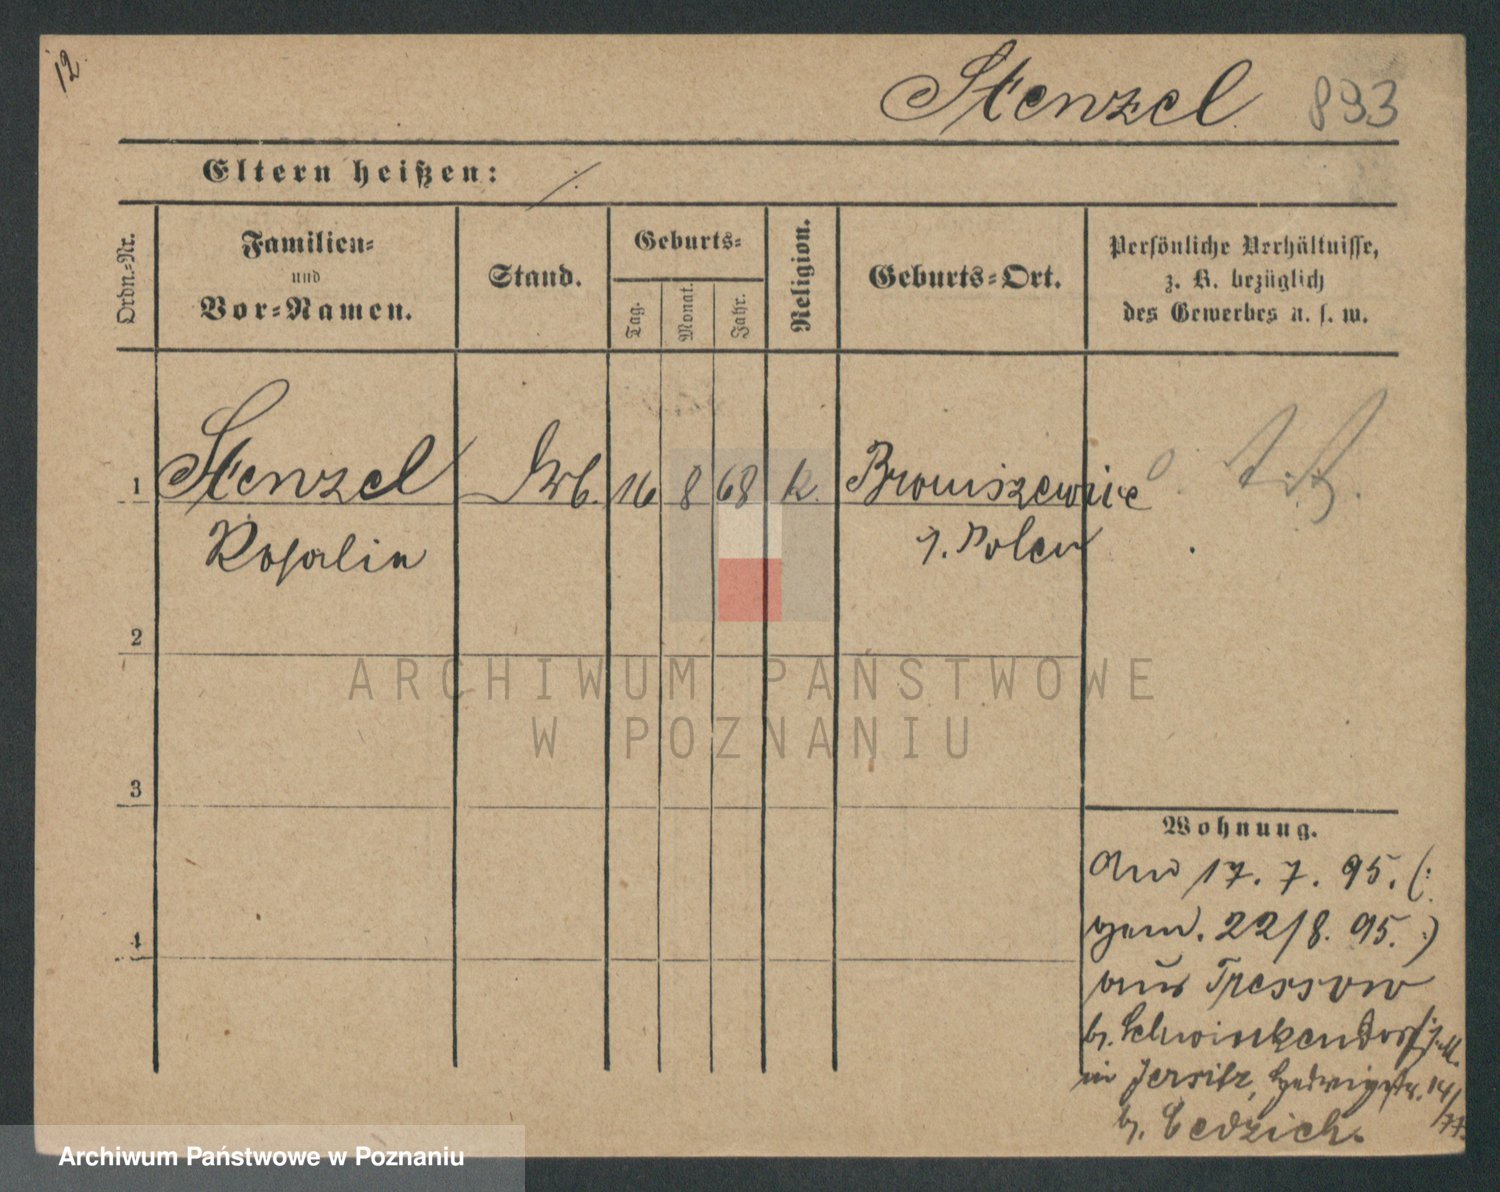 12
Stenzel 893
Eltern heißen: ⁒
Ordn.=Nr.
Familien=
und
Vor=Namen.
Stand.
Geburts=
Tag.
Monat.
Jahr.
Religion.
Geburts=Ort.
Persönliche Verhältnisse,
z. B. bezüglich
des Gewerbes u. s. w.
1 Stenzel Arb. 16 8 68 k. Broniszewice
Rosalie i. Polen
2
ARCHIWUM PAŃSTWOWE
W POZNANIU
3
4
Wohnung.
Am 17. 7. 95. (:
gem. 22/8. 95. :)
aus Tressow
b. Schwinkendorf i. M.
in Jersitz, Hedwigstr. 14/
b. Cedzich.
Archiwum Państwowe w Poznaniu